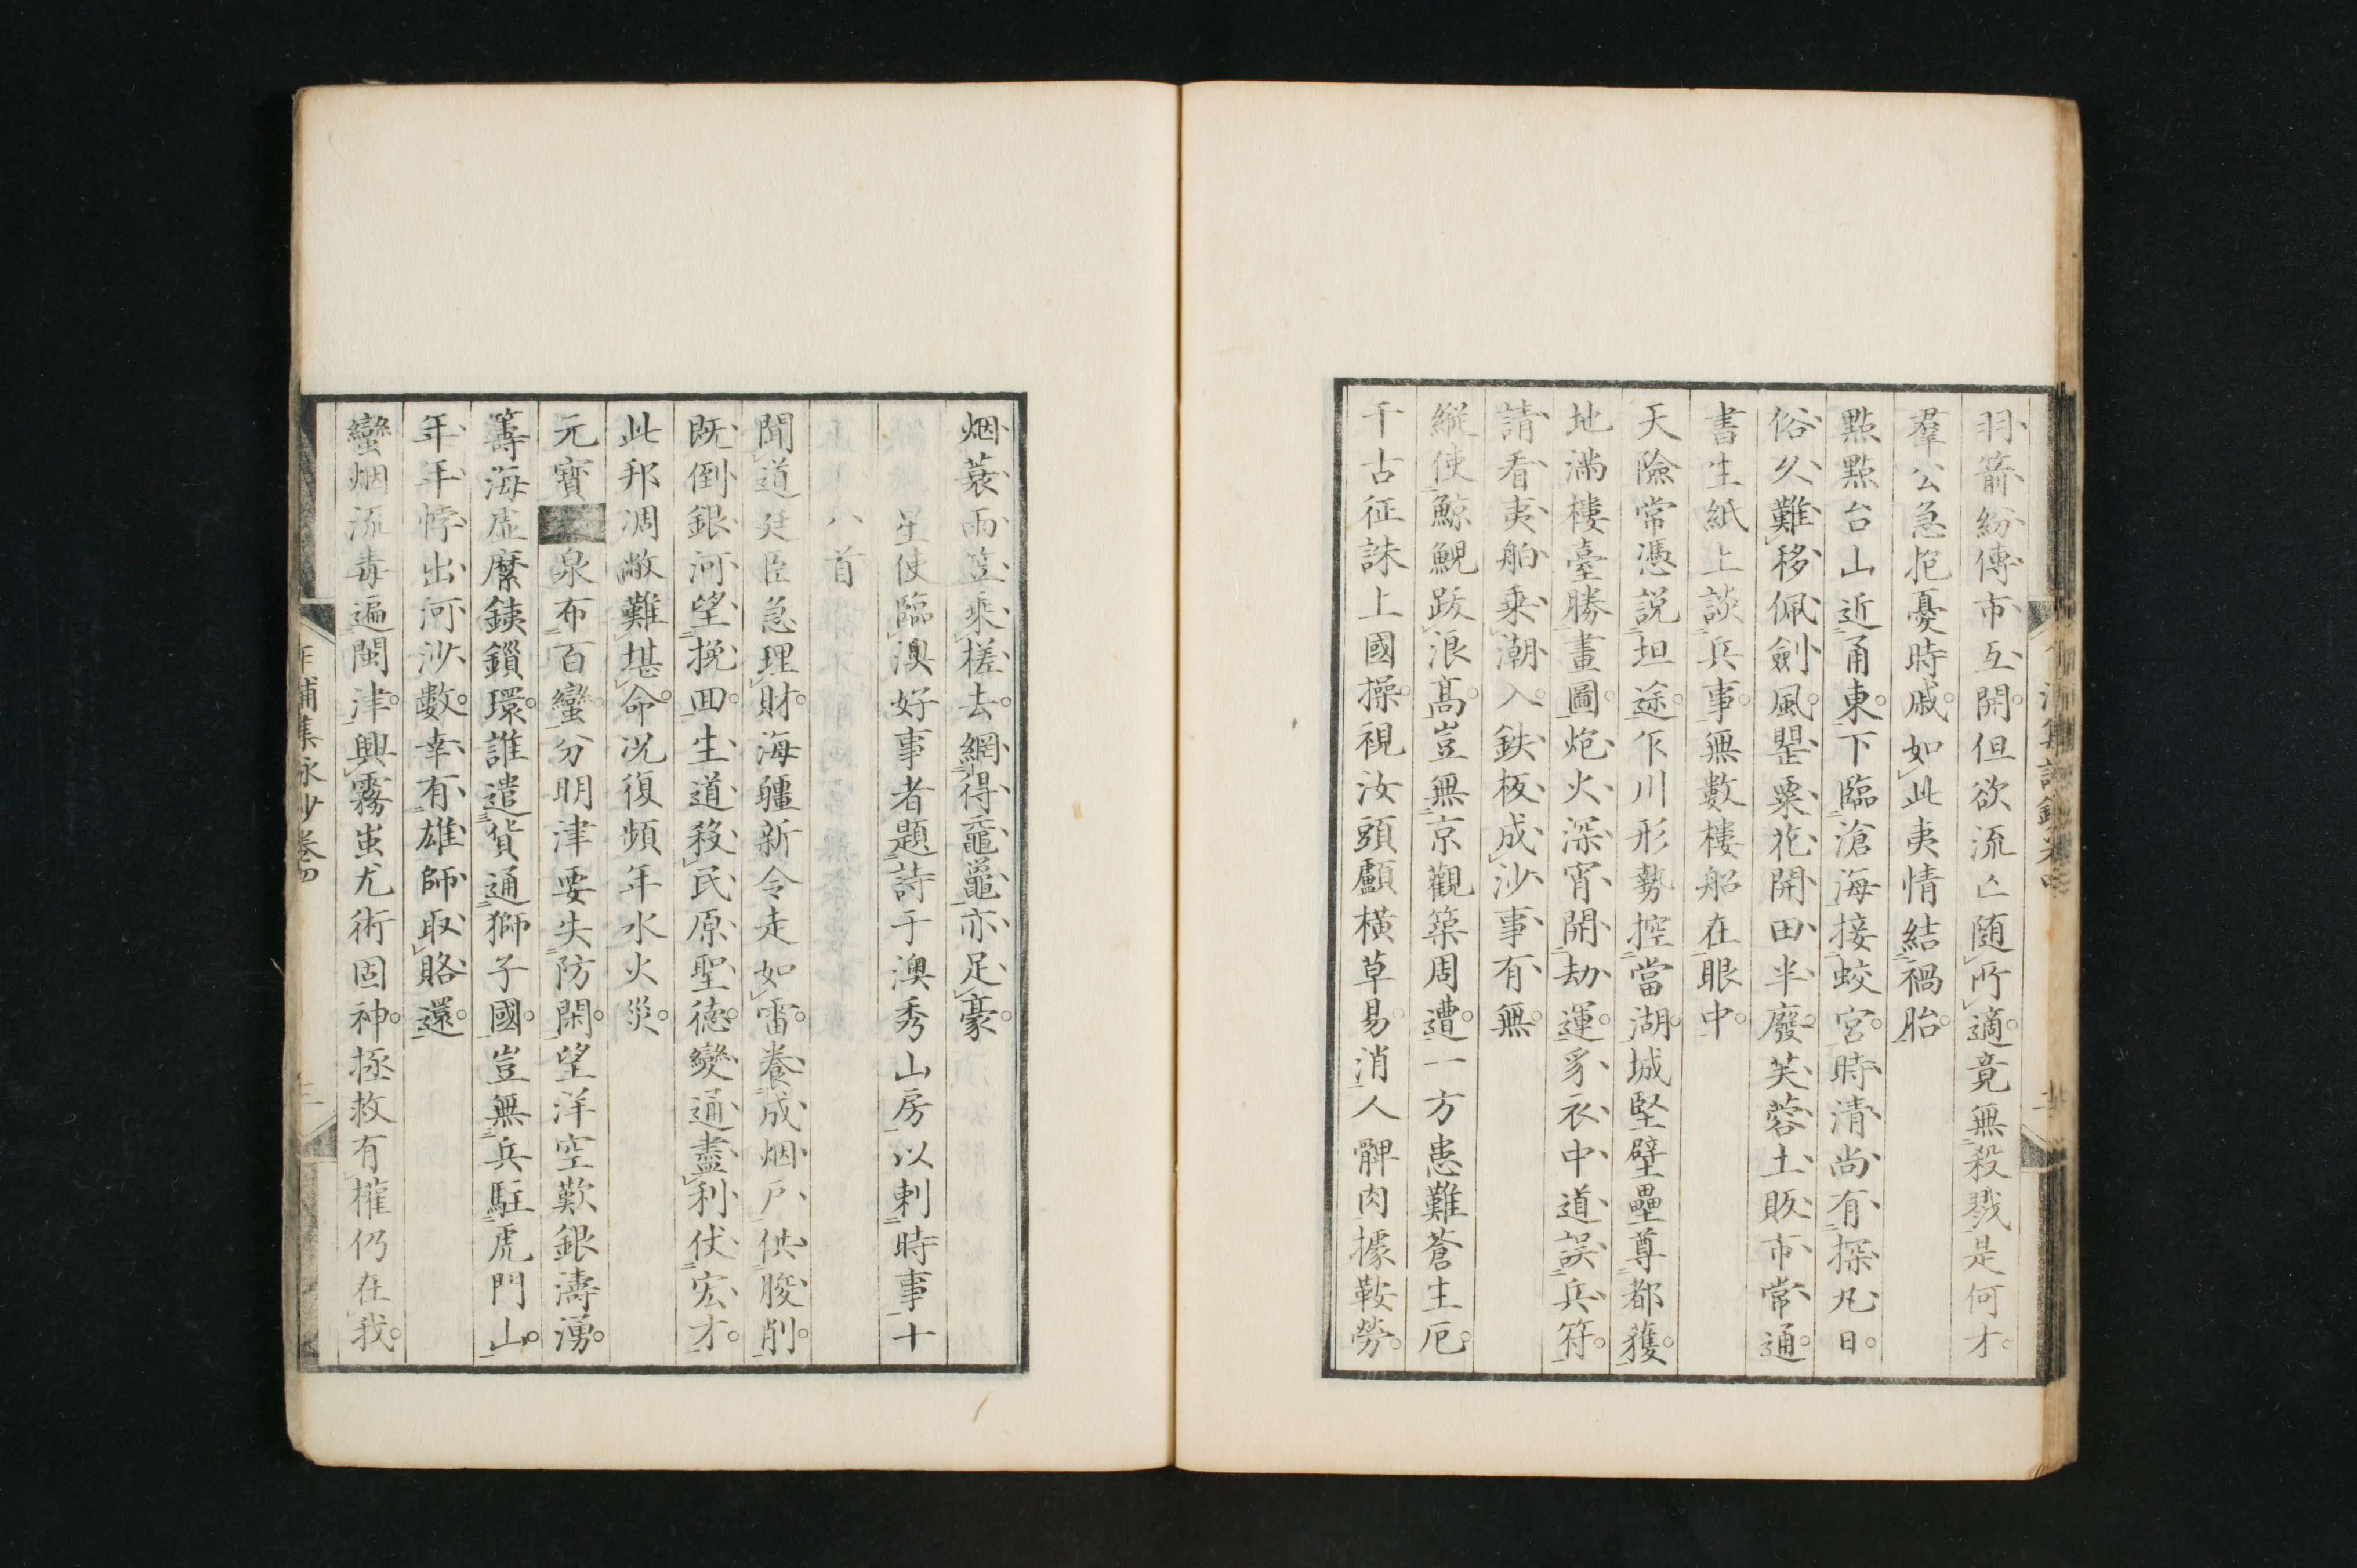 羽箭紛傳市互開但欲流亡随所適竟無殺戮是何才
羣公急抱憂時戚如此夷情結禍胎
點點台山近甬東下臨滄海接蛟宮時清尚有探丸日
俗久難移佩劍風罌粟花開田半廢芙蓉土販市常通
書生紙上談兵事無數樓船在眼中
天險常憑説坦途乍川形勢控當湖城堅壁壘尊都護
地滿樓臺勝畫圖炮火深宵開劫運豸衣中道誤兵符
請看夷舶乗潮入鉄板成沙事有無
縱使鯨鯢跋浪高豈無京觀築周遭一方患難蒼生厄
千古征誅上國操視汝頭顱横草易消人髀肉據鞍勞
烟蓑雨笠乘槎去網得黿鼉亦足豪
星使臨澳好事者題詩于澳秀山房以刺時事十
八首
聞道廷臣急理財海疆新令走如雷養成烟戶供朘削
既倒銀河望挽回生道殺民原聖德變通盡利伏宏才
此邦凋敝難堪命况復頻年水火災
元寳泉布百蠻分明津要失防閑望洋空歎銀濤湧
籌海虛縻鐵鎖環誰遣貨通獅子國豈無兵駐虎門山
年年悖出河沙數幸有雄師取賂還
蠻烟流毒遍閩津興霧蚩尤術固神拯救有權仍在我